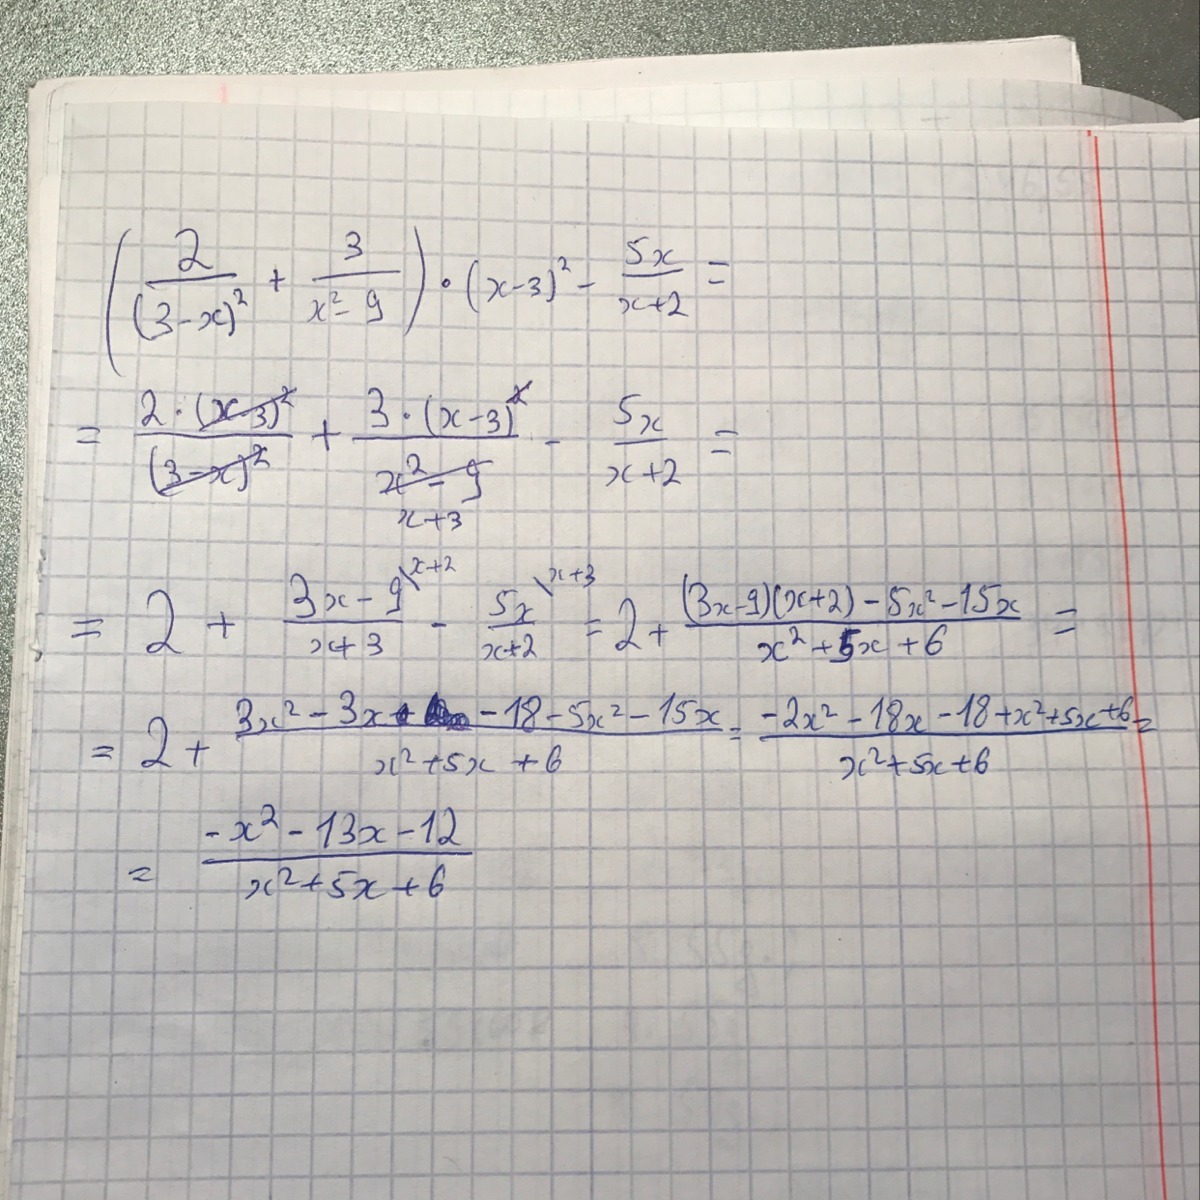 (2/(3-x)² + 3/(x²-9)) · (x-3)² - 5x/(x+2) =
= 2·(x-3)²/(3-x)² + 3·(x-3)²/(x²-9) x+3 - 5x/(x+2) =
= 2 + (3x-9)/(x+3) \x+2 - 5x/(x+2) \x+3 = 2 + ((3x-9)(x+2)-5x²-15x)/(x²+5x+6) =
= 2 + (3x²-3x -18-5x²-15x)/(x²+5x+6) = (-2x²-18x-18+x²+5x+6)/(x²+5x+6) =
= (-x²-13x-12)/(x²+5x+6)